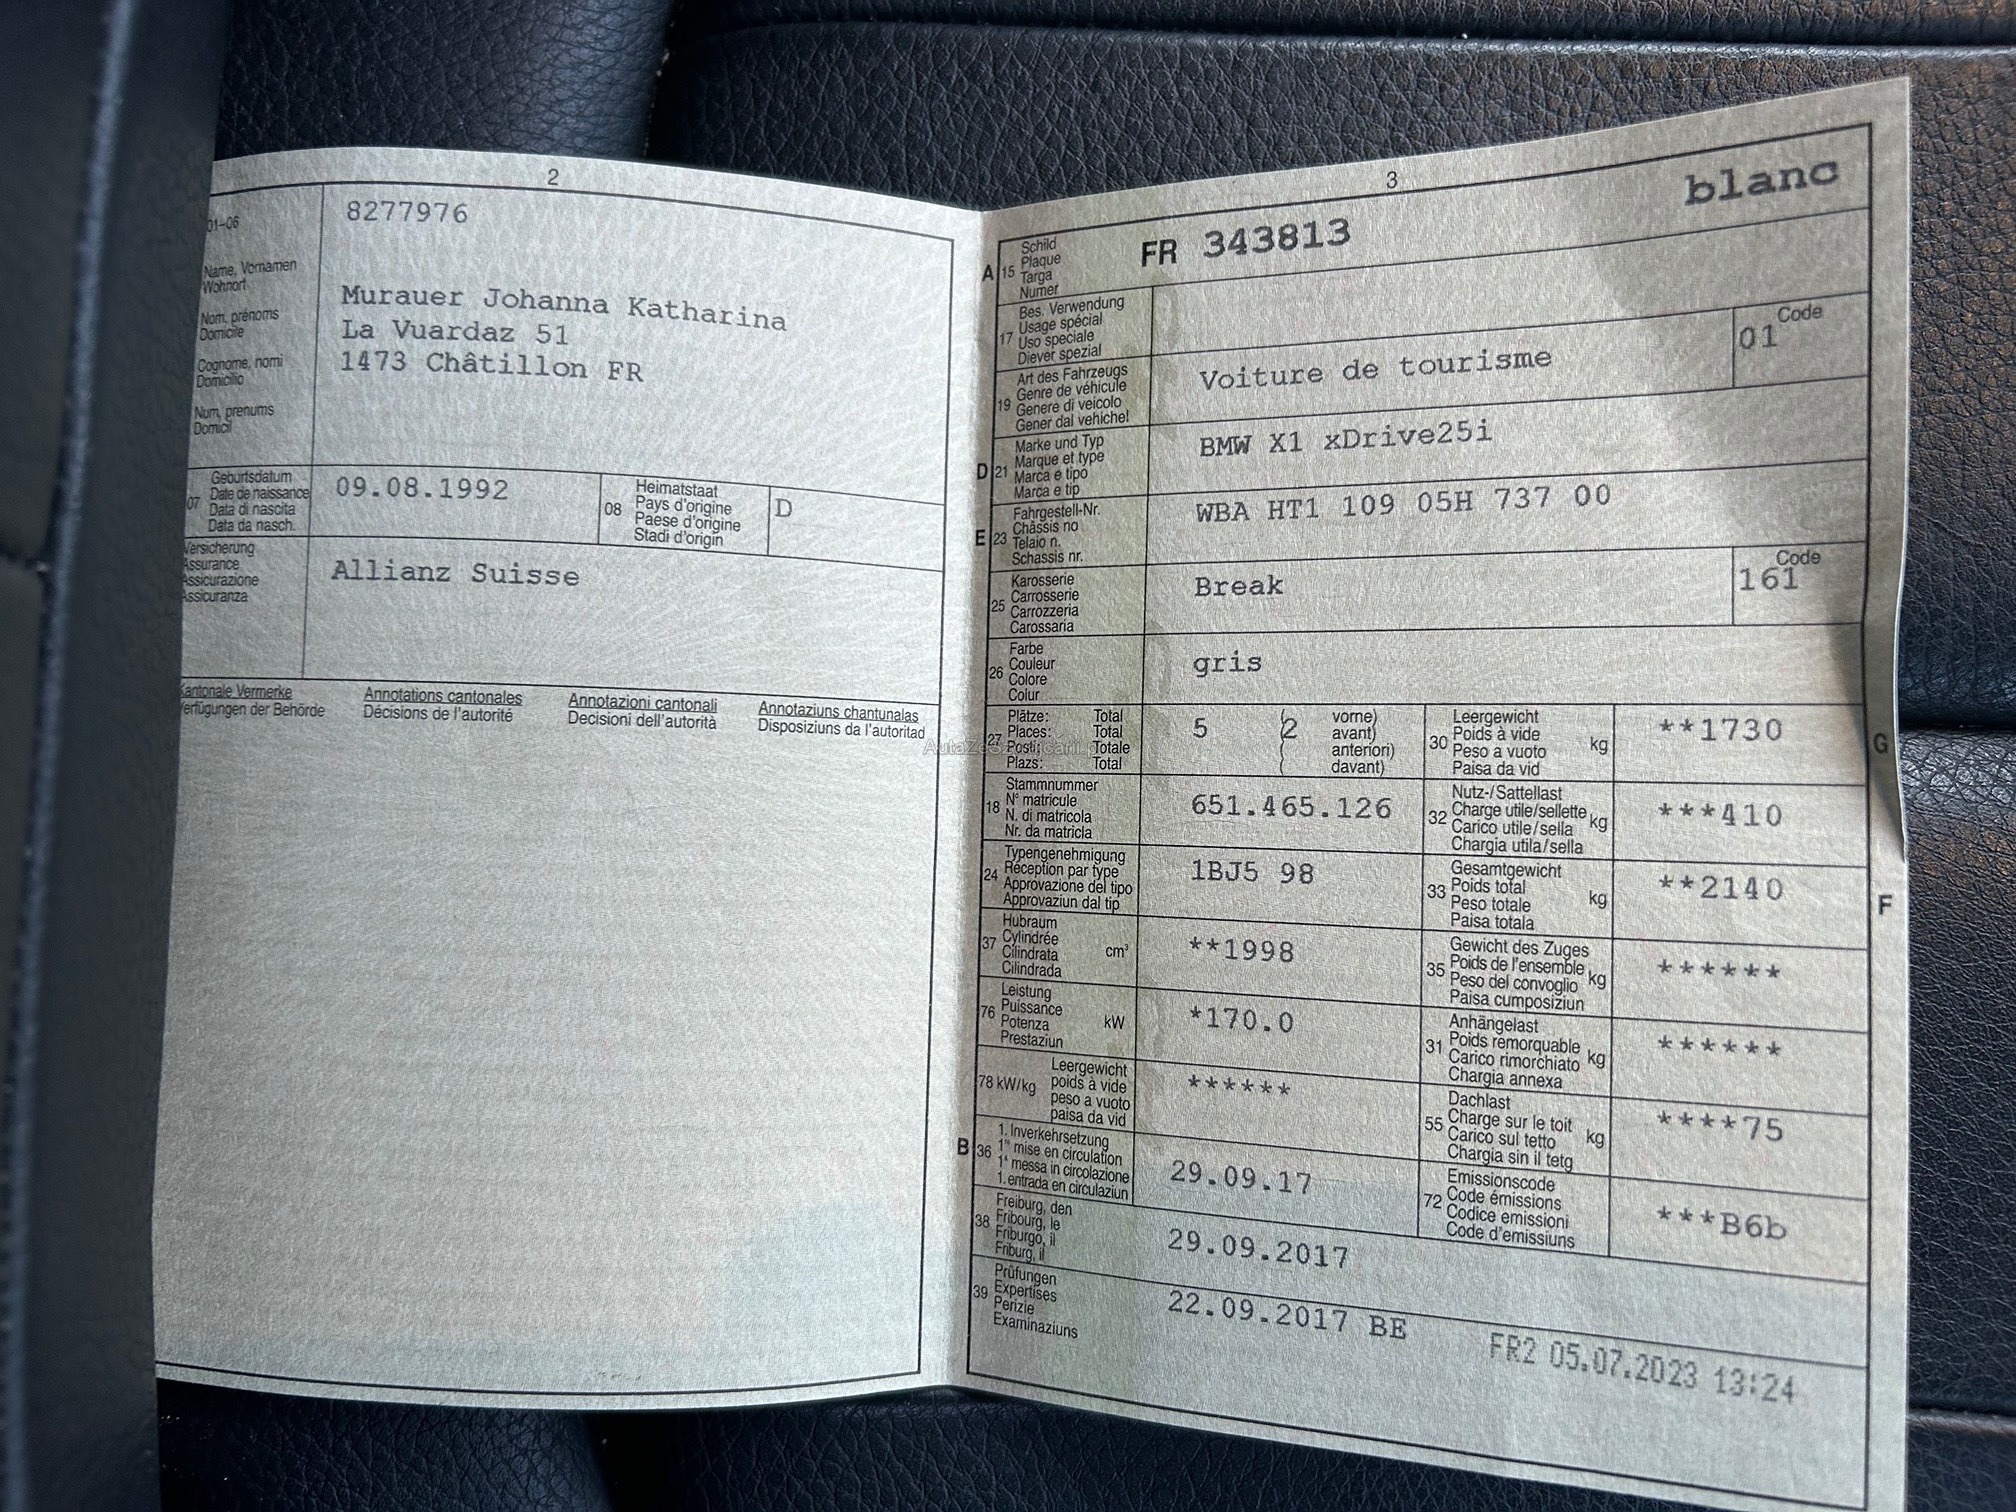 2
01-06
8277976
Name, Vornamen
Wohnort
Nom, prénoms
Domicile
Cognome, nomi
Domicilio
Num, prenums
Domicil
Murauer Johanna Katharina
La Vuardaz 51
1473 Châtillon FR
07
Geburtsdatum
Date de naissance
Data di nascita
Data da nasch.
09.08.1992
08
Heimatstaat
Pays d'origine
Paese d'origine
Stadi d'origin
D
Versicherung
Assurance
Assicurazione
Assicuranza
Allianz Suisse
Kantonale Vermerke
Verfügungen der Behörde
Annotations cantonales
Décisions de l'autorité
Annotazioni cantonali
Decisioni dell'autorità
Annotaziuns chantunalas
Disposiziuns da l'autoritad
3
blanc
A 15
Schild
Plaque
Targa
Numer
FR 343813
17
Bes. Verwendung
Usage spécial
Uso speciale
Diever spezial
19
Art des Fahrzeugs
Genre de véhicule
Genere di veicolo
Gener dal vehichel
Voiture de tourisme
Code
01
D 21
Marke und Typ
Marque et type
Marca e tipo
Marca e tip
BMW X1 xDrive25i
E 23
Fahrgestell-Nr.
Châssis no
Telaio n.
Schassis nr.
WBA HT1 109 05H 737 00
25
Karosserie
Carrosserie
Carrozzeria
Carossaria
Break
Code
161
26
Farbe
Couleur
Colore
Colur
gris
27
Plätze: Total
Places: Total
Posti: Totale
Plazs: Total
5 (2 vorne)
avant)
anteriori)
davant)
30
Leergewicht
Poids à vide
Peso a vuoto
Paisa da vid
kg
**1730
G
18
Stammnummer
N° matricule
N. di matricola
Nr. da matricla
651.465.126
32
Nutz-/Sattellast
Charge utile/sellette
Carico utile/sella
Chargia utila/sella
kg
***410
24
Typengenehmigung
Réception par type
Approvazione del tipo
Approvaziun dal tip
1BJ5 98
33
Gesamtgewicht
Poids total
Peso totale
Paisa totala
kg
**2140
F
37
Hubraum
Cylindrée
Cilindrata
Cilindrada
cm³
**1998
35
Gewicht des Zuges
Poids de l'ensemble
Peso del convoglio
Paisa cumposiziun
kg
******
76
Leistung
Puissance
Potenza
Prestaziun
kW
*170.0
31
Anhängelast
Poids remorquable
Carico rimorchiato
Chargia annexa
kg
******
78 kW/kg
Leergewicht
poids à vide
peso a vuoto
paisa da vid
******
55
Dachlast
Charge sur le toit
Carico sul tetto
Chargia sin il tetg
kg
****75
B 36
1. Inverkehrsetzung
1re mise en circulation
1a messa in circolazione
1. entrada en circulaziun
29.09.17
72
Emissionscode
Code émissions
Codice emissioni
Code d'emissiuns
***B6b
38
Freiburg, den
Fribourg, le
Friburgo, il
Friburg, il
29.09.2017
39
Prüfungen
Expertises
Perizie
Examinaziuns
22.09.2017 BE
FR2 05.07.2023 13:24